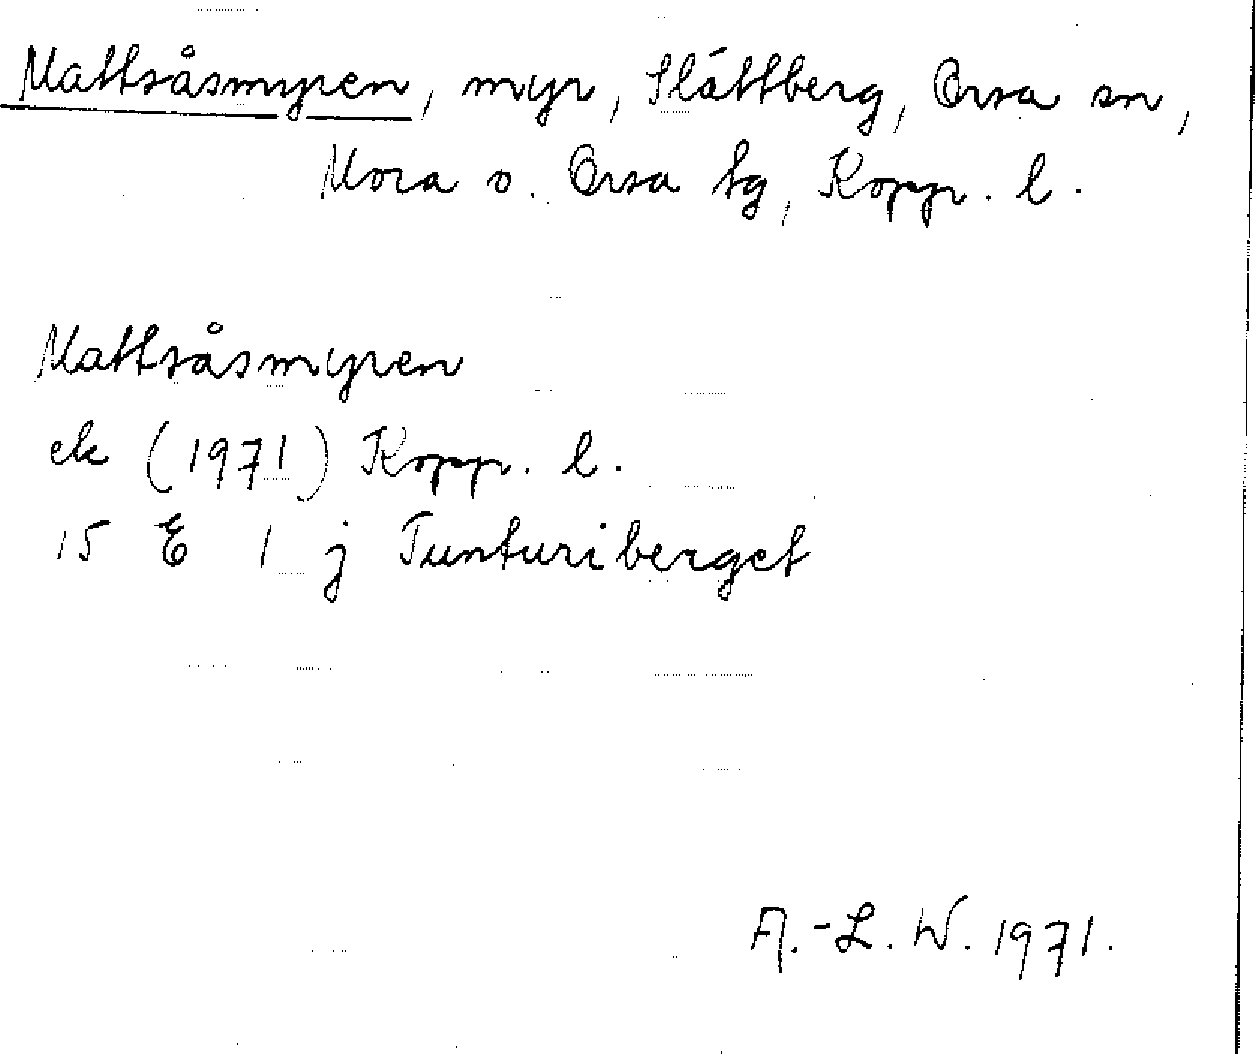 Mattsåsmyren, myr, Slättberg, Orsa sn,
Mora o. Orsa tg, Kopp. l.
Mattsåsmyren
ek (1971) Kopp. l.
15 E 1 j Tunturiberget
A.-L. W. 1971.